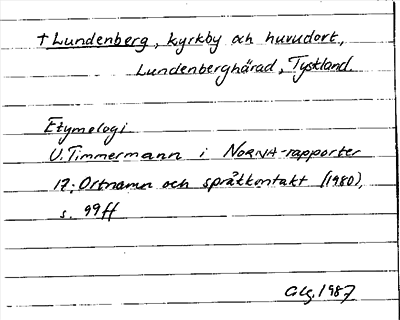 †Lundenberg, kyrkby och huvudort,
Lundenberghärad, Tyskland.
Etymologi
U. Timmermann i NORNA-rapporter
17: Ortnamn och språkkontakt (1980),
s. 99ff
1987